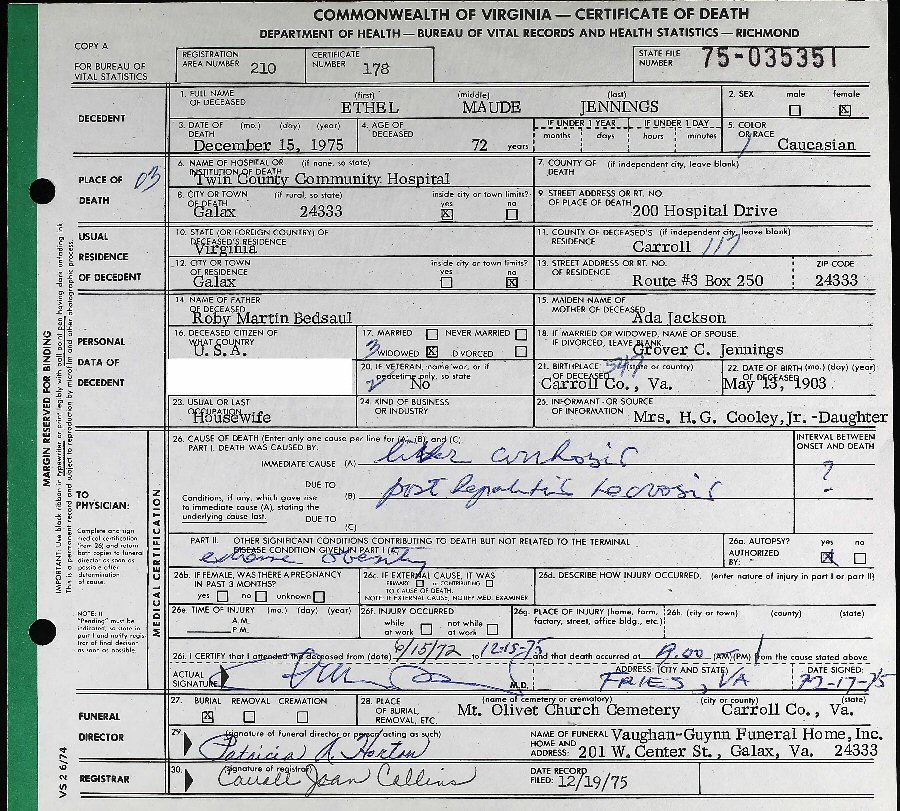 COMMONWEALTH OF VIRGINIA — CERTIFICATE OF DEATH
DEPARTMENT OF HEALTH — BUREAU OF VITAL RECORDS AND HEALTH STATISTICS — RICHMOND
COPY A
FOR BUREAU OF VITAL STATISTICS
REGISTRATION AREA NUMBER 210
CERTIFICATE NUMBER 178
STATE FILE NUMBER 75-035351
DECEDENT
1. FULL NAME OF DECEASED (first) ETHEL (middle) MAUDE (last) JENNINGS
2. SEX male female ☒
3. DATE OF DEATH (mo.) (day) (year) December 15, 1975
4. AGE OF DECEASED 72 years
IF UNDER 1 YEAR months days
IF UNDER 1 DAY hours minutes
5. COLOR OR RACE Caucasian
PLACE OF DEATH 03
6. NAME OF HOSPITAL OR INSTITUTION OF DEATH (if none, so state) Twin County Community Hospital
7. COUNTY OF DEATH (if independent city, leave blank)
8. CITY OR TOWN OF DEATH (if rural, so state) Galax 24333
inside city or town limits? yes ☒ no
9. STREET ADDRESS OR RT. NO OF PLACE OF DEATH 200 Hospital Drive
USUAL RESIDENCE OF DECEDENT
10. STATE (OR FOREIGN COUNTRY) OF DECEASED'S RESIDENCE Virginia
11. COUNTY OF DECEASED'S RESIDENCE (if independent city, leave blank) Carroll 117
12. CITY OR TOWN OF RESIDENCE Galax
inside city or town limits? yes no ☒
13. STREET ADDRESS OR RT. NO. OF RESIDENCE Route #3 Box 250
ZIP CODE 24333
PERSONAL DATA OF DECEDENT
14 NAME OF FATHER OF DECEASED Roby Martin Bedsaul
15. MAIDEN NAME OF MOTHER OF DECEASED Ada Jackson
16. DECEASED CITIZEN OF WHAT COUNTRY U.S.A.
17. MARRIED NEVER MARRIED 3 WIDOWED ☒ DIVORCED
18. IF MARRIED OR WIDOWED, NAME OF SPOUSE. IF DIVORCED, LEAVE BLANK. Grover C. Jennings
20. IF VETERAN, name war, or if peacetime only, so state 2 No
21. BIRTHPLACE (state or country) OF DECEASED Carroll Co., Va.
22. DATE OF BIRTH (mo.) (day) (year) OF DECEASED May 13, 1903
23. USUAL OR LAST OCCUPATION Housewife
24. KIND OF BUSINESS OR INDUSTRY
25. INFORMANT - OR SOURCE OF INFORMATION Mrs. H.G. Cooley, Jr. -Daughter
MARGIN RESERVED FOR BINDING
IMPORTANT: Use black ribbon in typewriter or print legibly with ball point pen having dark unfading ink.
This is a permanent record and subject to reproduction by microfilm and other photographic process.
TO PHYSICIAN:
Complete and sign medical certification (item 26) and return both copies to funeral director as soon as possible after determination of cause.
NOTE: If "Pending" must be indicated, so state in part I and notify registrar of final decision as soon as possible.
MEDICAL CERTIFICATION
26. CAUSE OF DEATH (Enter only one cause per line for (A), (B), and (C).
PART I. DEATH WAS CAUSED BY.
INTERVAL BETWEEN ONSET AND DEATH
IMMEDIATE CAUSE (A) liver cirrhosis ?
DUE TO
Conditions, if any, which gave rise to immediate cause (A), stating the underlying cause last.
(B) post hepatitis necrosis -
DUE TO
(C)
PART II. OTHER SIGNIFICANT CONDITIONS CONTRIBUTING TO DEATH BUT NOT RELATED TO THE TERMINAL DISEASE CONDITION GIVEN IN PART I (A)
extreme obesity
26a. AUTOPSY? yes ☒ no
AUTHORIZED BY:
26b. IF FEMALE, WAS THERE A PREGNANCY IN PAST 3 MONTHS? yes no unknown
26c. IF EXTERNAL CAUSE, IT WAS PRIMARY or CONTRIBUTING TO CAUSE OF DEATH.
NOTE: IF EXTERNAL CAUSE, NOTIFY MED. EXAMINER
26d. DESCRIBE HOW INJURY OCCURRED. (enter nature of injury in part I or part II)
26e. TIME OF INJURY (mo.) (day) (year) A.M. P.M.
26f. INJURY OCCURRED while at work not while at work
26g. PLACE OF INJURY (home, farm, factory, street, office bldg., etc.)
26h. (city or town) (county) (state)
26i. I CERTIFY that I attended the deceased from (date) 6/15/72 to 12-15-75 and that death occurred at 9:00 (AM) (PM) from the cause stated above
ACTUAL SIGNATURE M.D.
ADDRESS: (CITY AND STATE) FRIES, VA
DATE SIGNED: 12-17-75
FUNERAL DIRECTOR
27. BURIAL ☒ REMOVAL CREMATION
28. PLACE OF BURIAL, REMOVAL, ETC. (name of cemetery or crematory) Mt. Olivet Church Cemetery
(city or county) (state) Carroll Co., Va.
29. (signature of funeral director or person acting as such) Patricia A. Horton
NAME OF FUNERAL HOME AND ADDRESS: Vaughan-Guynn Funeral Home, Inc. 201 W. Center St., Galax, Va. 24333
REGISTRAR
30. (signature of registrar) Carroll Joan Collins
DATE RECORD FILED: 12/19/75
VS 2 6/74